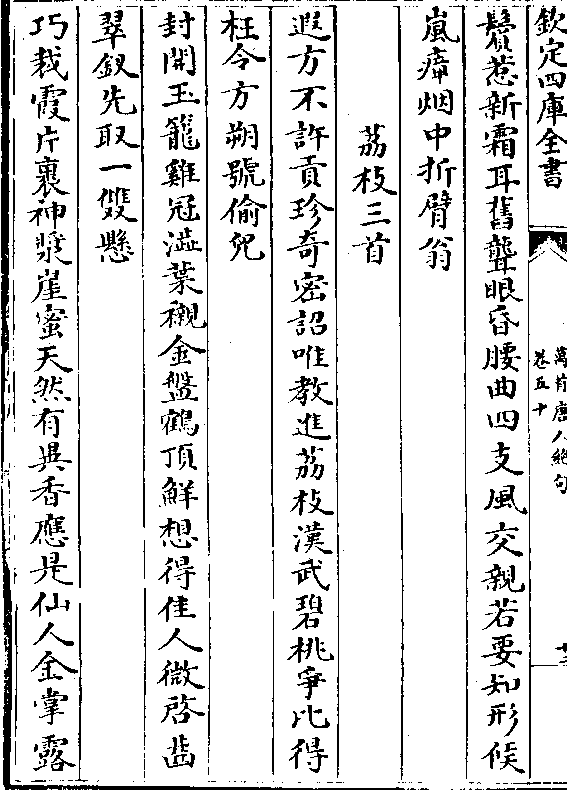 欽定四庫全書
萬首唐人絶句
卷五十
鬢惹新霜耳舊聾眼昏腰曲四支風交親若要知形候
嵐瘴烟中折臂翁
荔枝三首
遐方不許貢珍奇宻詔唯教進荔枝漢武碧桃爭比得
枉令方朔號偷兒
封開玉籠雞冠澁葉襯金盤鶴頂鮮想得佳人微啓齒
翠釵先取一雙懸
巧裁霞片裹神漿崖蜜天然有異香應是仙人金掌露